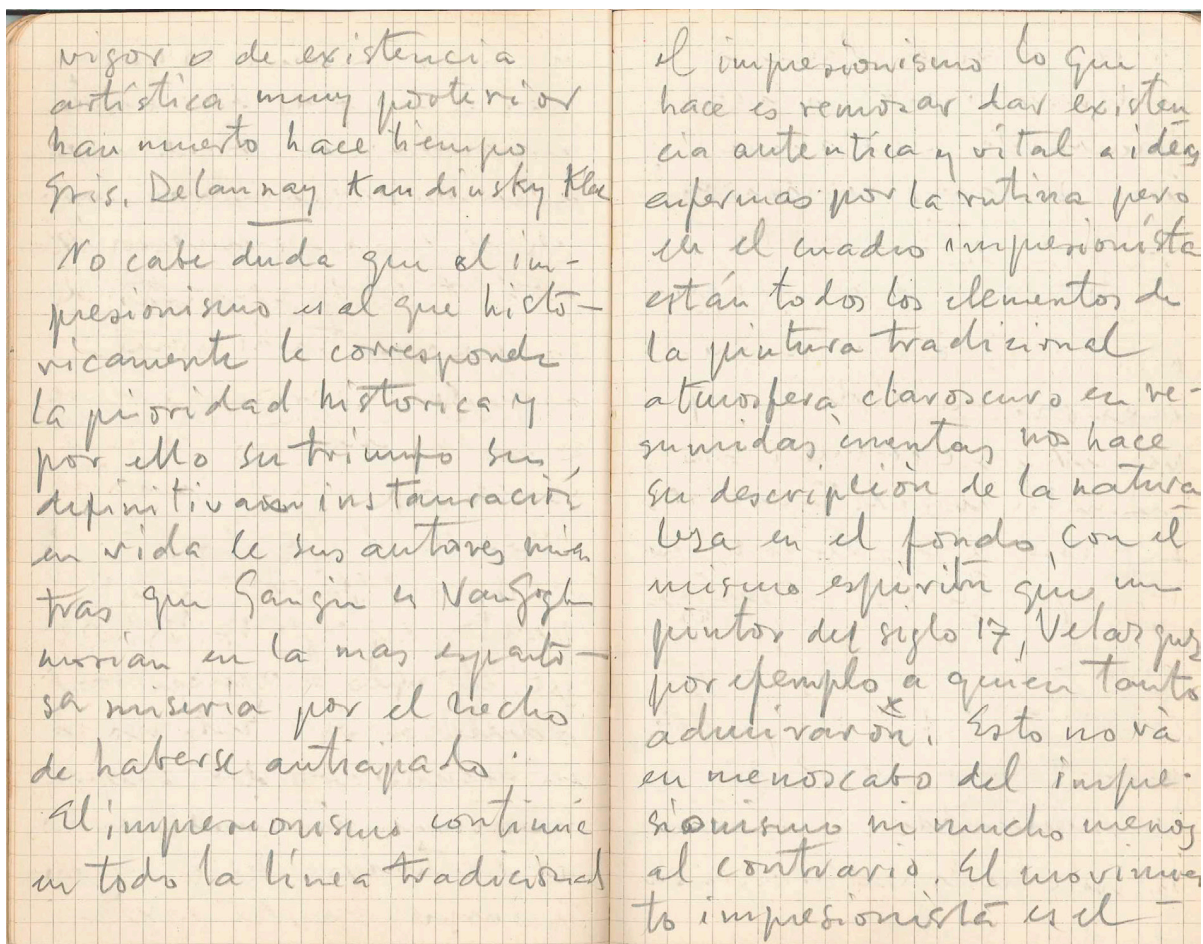 vigor o de existencia
artística muy posterior
han muerto hace tiempo
Gris, Delaunay Kandinsky Klee
No cabe duda que el im-
presionismo es al que histó-
ricamente le corresponde
la prioridad historica y
por ello su triunfo su
definitiva instauración
en vida de sus autores mien
tras que Gaugin y VanGogh
morian en la mas espanto-
sa miseria por el hecho
de haberse anticipado.
El impresionismo continúe
en todo la línea tradicional
el impresionismo lo que
hace es remozar dar existen
cia autentica y vital a ideas
enfermas por la rutina pero
en el cuadro impresionista
están todos los elementos de
la pintura tradizional
atmosfera claroscuro en re-
sumidas cuentas nos hace
su descripción de la natura
leza en el fondo, con el
mismo espiritu que un
pintor del siglo 17, Velazquez
por ejemplo a quien tanto
admiraron. Esto no và
en menoscabo del impre-
sionismo ni mucho menos
al contrario. El movimien
to impresionista es el -